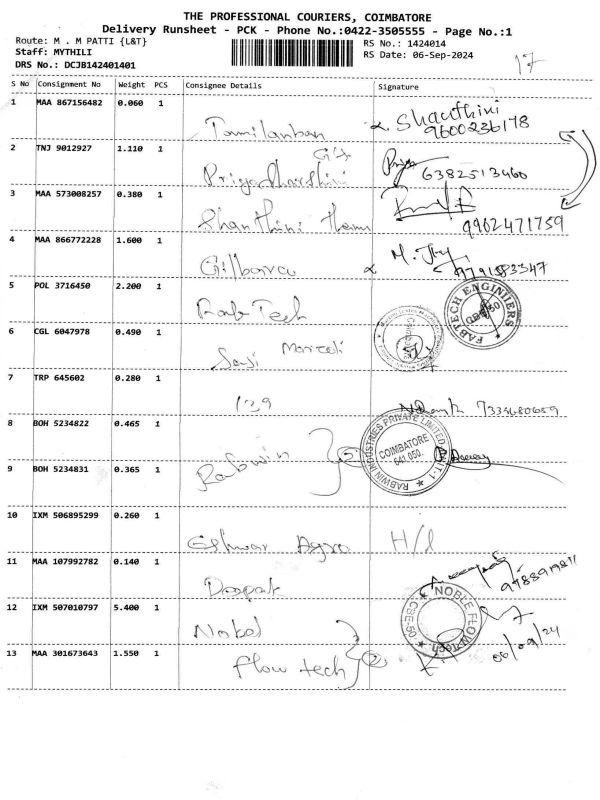 THE PROFESSIONAL COURIERS, COIMBATORE
Delivery Runsheet - PCK - Phone No.:0422-3505555 - Page No.:1
Route: M . M PATTI {L&T}
RS No.: 1424014
Staff: MYTHILI
RS Date: 06-Sep-2024
DRS No.: DCJB142401401
17
S No Consignment No Weight PCS Consignee Details Signature
1 MAA 867156482 0.060 1 Tamilanban Shanthini
9600236178
2 TNJ 9012927 1.110 1 Priyadharshini Priya 6382513460
3 MAA 573008257 0.380 1 Shanthini 9962471759
4 MAA 866772228 1.600 1 Gilbarco 9791583347
5 POL 3716450 2.200 1 Fab Tech FABTECH ENGINEERS
6 CGL 6047978 0.490 1
7 TRP 645602 0.280 1 139
8 BOH 5234822 0.465 1 Rabwin 2 RABWIN INDUSTRIES PRIVATE LIMITED UNIT-1
COIMBATORE
641 050.
9 BOH 5234831 0.365 1
10 IXM 506895299 0.260 1 Eshwar Agro H/d
11 MAA 107992782 0.140 1 Deepak
12 IXM 507010797 5.400 1 Nobel NOBLE FLOWTECH CBE-09
13 MAA 301673643 1.550 1 flow tech 2 06/09/24